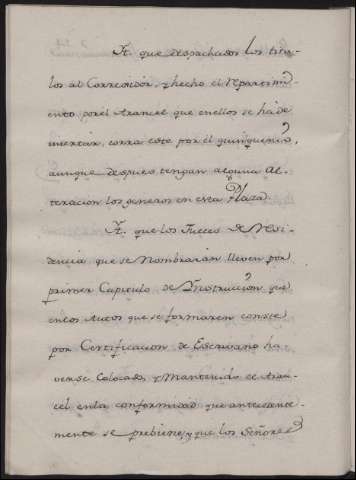 Yt. que despachados los titu-
los al Corregidor, y hecho el repartim
ento por el Arancel que en ellos se ha de
incertar, corra este por el quinquenio,
aunque despues tengan alguna al-
teracion los generos en esta Plaza.
Yt. que los Jueces de Resi-
dencia que se nombraràn lleven por
primer Capitulo de Ynstruccion que
en los Autos que se formaren conste
por Certificacion de Escrivano ha-
verse Colocado, y Mantenido el Aran-
cel en la conformidad que anteceente-
mente se prebiene, y que los Señores